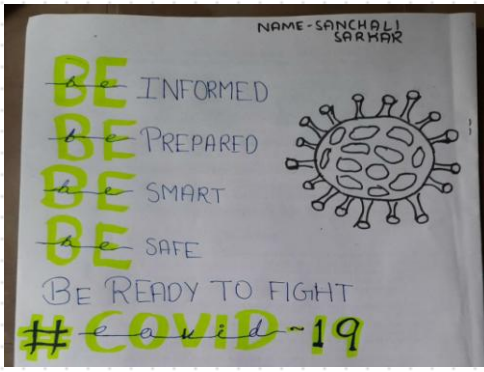 NAME-SANCHALI
SARKAR
BE be INFORMED
BE be PREPARED
BE be SMART
BE be SAFE
BE READY TO FIGHT
#COVID covid-19